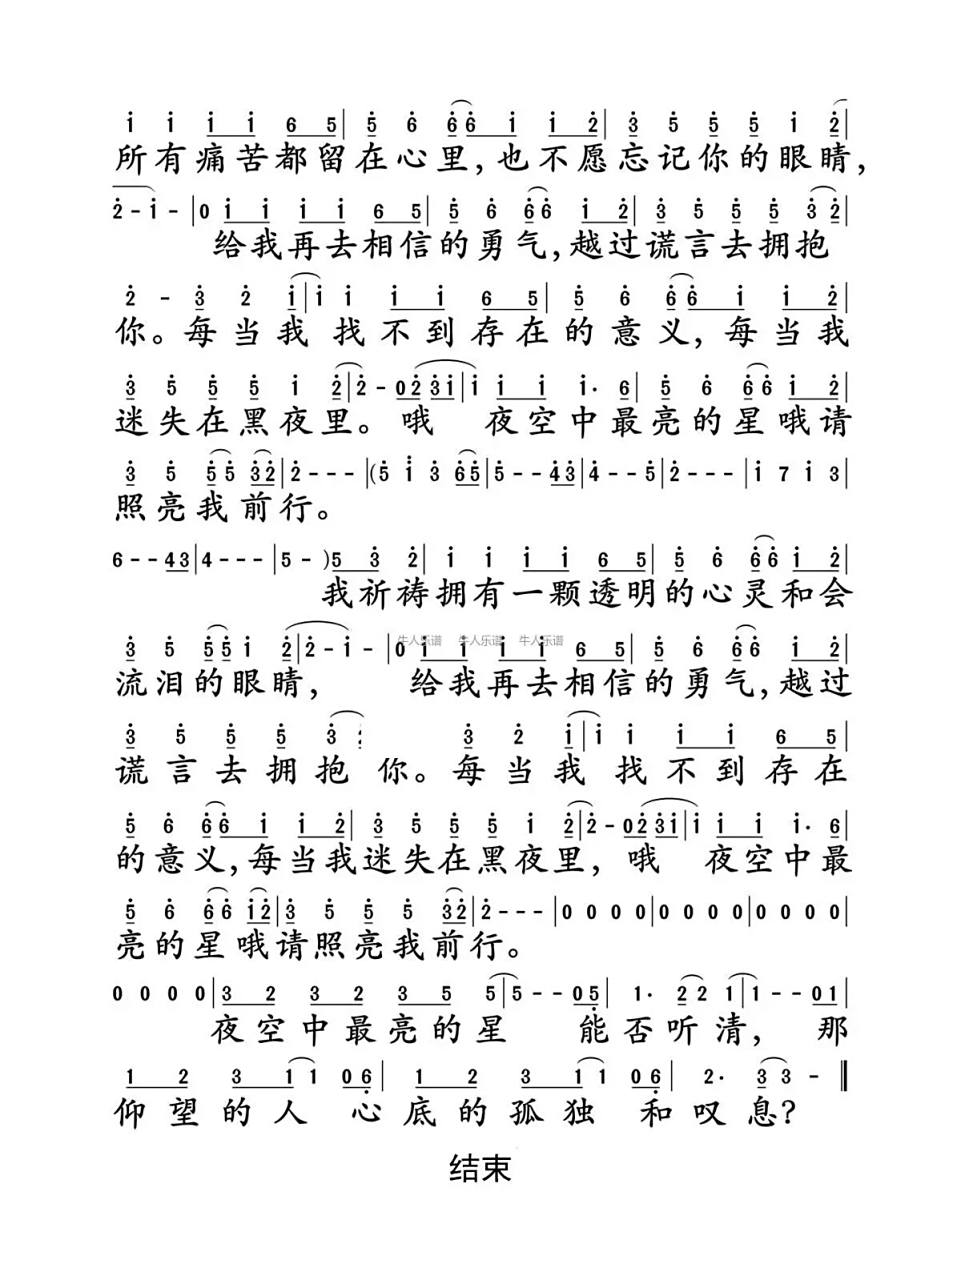 1 1 1 1 6 5 | 5 6 6 6 1 1 2 | 3 5 5 5 1 2 |
所有痛苦都留在心里,也不愿忘记你的眼睛,
2 - 1 - | 0 1 1 1 1 6 5 | 5 6 6 6 1 2 | 3 5 5 5 3 2 |
给我再去相信的勇气,越过谎言去拥抱
2 - 3 2 1 | 1 1 1 1 6 5 | 5 6 6 6 1 1 2 |
你。每当我 找不到存在的意义,每当我
3 5 5 5 1 2 | 2 - 0 2 3 1 | 1 1 1 1· 6 | 5 6 6 6 1 2 |
迷失在黑夜里。哦 夜空中最亮的星哦请
3 5 5 5 3 2 | 2 - - - | (5 1 3 6 5 | 5 - - 4 3 | 4 - - 5 | 2 - - - | 1 7 1 3 |
照亮我前行。
6 - - 4 3 | 4 - - - | 5 - ) 5 3 2 | 1 1 1 1 6 5 | 5 6 6 6 1 2 |
我祈祷拥有一颗透明的心灵和会
3 5 5 5 1 2 | 2 - 1 - | 0 1 1 1 1 6 5 | 5 6 6 6 1 2 |
牛人乐谱 牛人乐谱 牛人乐谱
流泪的眼睛, 给我再去相信的勇气,越过
3 5 5 5 3 2 3 2 1 | 1 1 1 1 6 5 |
谎言去拥抱 你。每当我 找不到存在
5 6 6 6 1 1 2 | 3 5 5 5 1 2 | 2 - 0 2 3 1 | 1 1 1 1· 6 |
的意义,每当我迷失在黑夜里, 哦 夜空中最
5 6 6 6 1 2 | 3 5 5 5 3 2 | 2 - - - | 0 0 0 0 | 0 0 0 0 | 0 0 0 0 |
亮的星哦请照亮我前行。
0 0 0 0 | 3 2 3 2 3 5 5 | 5 - - 0 5 | 1· 2 2 1 | 1 - - 0 1 |
夜空中最亮的星 能否听清, 那
1 2 3 1 1 0 6 | 1 2 3 1 1 0 6 | 2· 3 3 - ‖
仰望的人 心底的孤独 和叹息?
结束